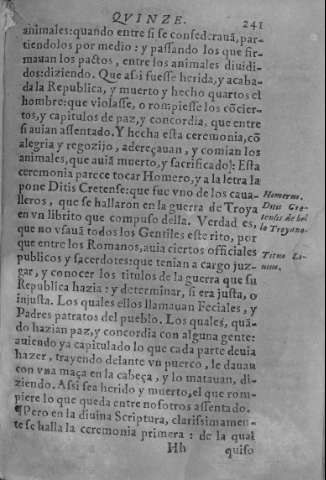 QVINZE. 241
animales: quando entre si se confederauã, par-
tiendolos por medio: y passando los que fir-
mauan los pactos, entre los animales diuidi-
dos: diziendo. Que assi fuesse herida, y acaba-
da la Republica, y muerto y hecho quartos el
hombre: que violasse, o rompiesse los cõcier-
tos, y capitulos de paz, y concordia, que entre
si auian assentado. Y hecha esta ceremonia, cõ
alegria y regozijo, adereçauan, y comian los
animales, que auiã muerto, y sacrificado. Esta
ceremonia parece tocar Homero, y a la letra la
pone Ditis Cretense: que fue vno de los caua-
Homerus.
lleros, que se hallaron en la guerra de Troya
Ditis Cre-
en vn librito que compuso della. Verdad es,
tensis de bel
la Troyano.
que no vsauã todos los Gentiles este rito, por
que entre los Romanos, auia ciertos officiales
Titus Li-
publicos y sacerdotes: que tenian a cargo juz-
uius.
gar, y conocer los titulos de la guerra que su
Republica hazia: y determinar, si era justa, o
injusta. Los quales ellos llamauan Feciales, y
Padres patratos del pueblo. Los quales, quã-
do hazian paz, y concordia con alguna gente:
auiendo ya capitulado lo que cada parte deuia
hazer, trayendo delante vn puerco, le dauan
con vna maça en la cabeça, y lo matauan, di-
ziendo. Assi sea herido y muerto, el que rom-
piere lo que queda entre nosotros assentado.
¶Pero en la diuina Scriptura, clarissimamen-
te se halla la ceremonia primera: de la qual
Hh quiso